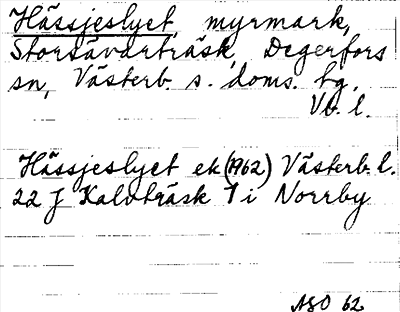 Hässjeslyet, myrmark,
Storsävarträsk, Degerfors
sn, Västerb. s. doms. tg.
Vb. l.
Hässjeslyet ek (1962) Västerb. l.
22 J Kalvträsk 7 i Norrby
ASO 62